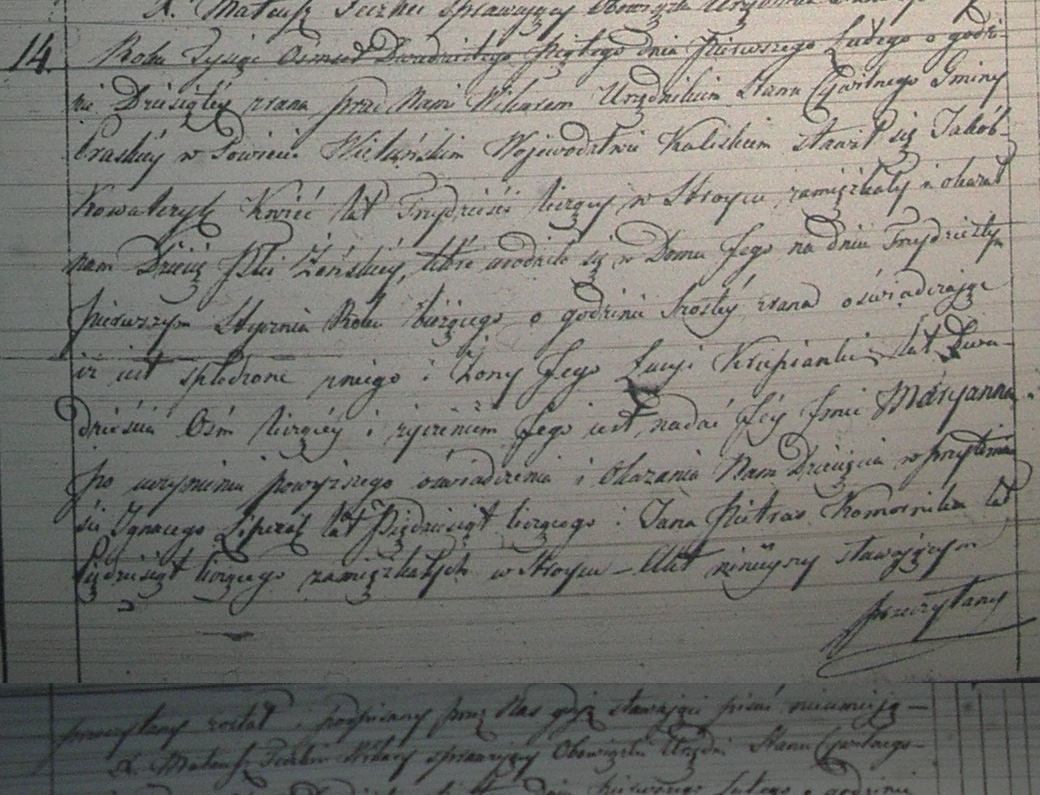 X. Mateusz sprawujący Obowiązki
14. Roku Tysiąc Ośmset Dwudziestego Piątego dnia Pierwszego Lutego o godzi-
nie Dziesiątey zrana przed Nami Wikarem Urzędnikiem Stanu Cywilnego Gminy
Praskiey w Powiecie Wieluńskim Wojewodztwie Kaliskiem stawił się Jakób
Kowalczyk Kmieć lat Trzydzieści liczący w Stroycu zamięszkały i okazał
nam Dziecię Płci Żeńskiey, które urodziło się w Domu Jego na dniu Trzydziestym
pierwszym Stycznia Roku bieżącego o godzinie szostey zrana oświadczając
iż iest spłodzone zniego i Żony Jego Łucyi Krupianki lat Dwa-
dzieścia Ośm liczącey i życzeniem Jego iest nadać Jey Jmie Maryanna.
po uczynieniu powyższego oświadczenia i Okazania Nam Dziecięcia w przytomno-
ści Ignacego lat Pięćdziesiąt liczącego i Jana Pietras Komornika lat
Pięćdziesiąt liczącego zamięszkałych w Stroycu – Akt ninieyszy stawaiącym
przeczytany
przeczytany został i podpisany przez Nas gdyż stawaiący pisać nieumieią –
X. Mateusz Wikary sprawuiący Obowiązki Urzędni Stanu Cywilnego –
dnia Pierwszego Lutego o godzinie